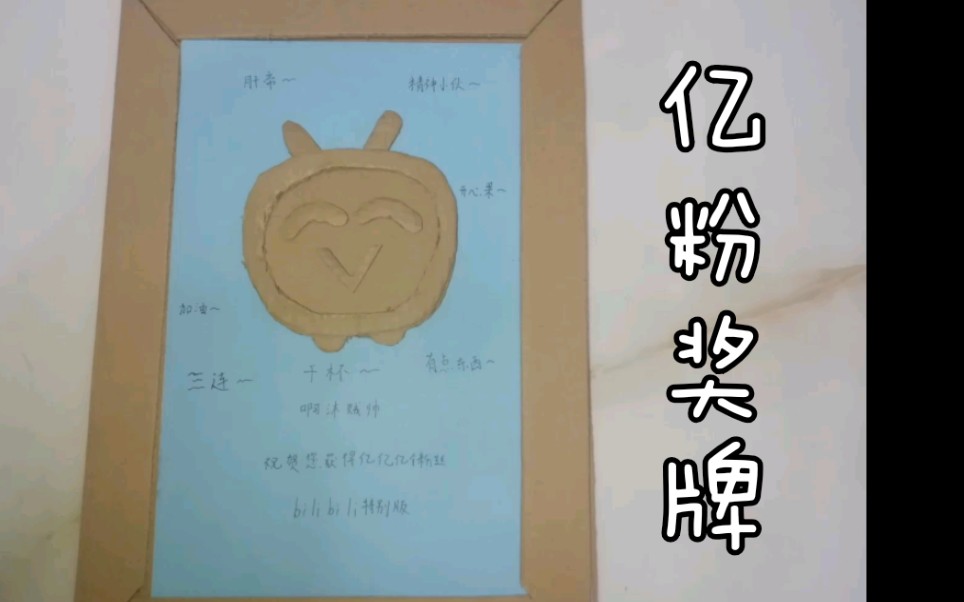 肝帝～
精神小伙～
开心果～
加油～
有点东西～
三连～
干杯～
祝贺您获得亿亿亿个粉丝
bilibili特别版
亿粉奖牌